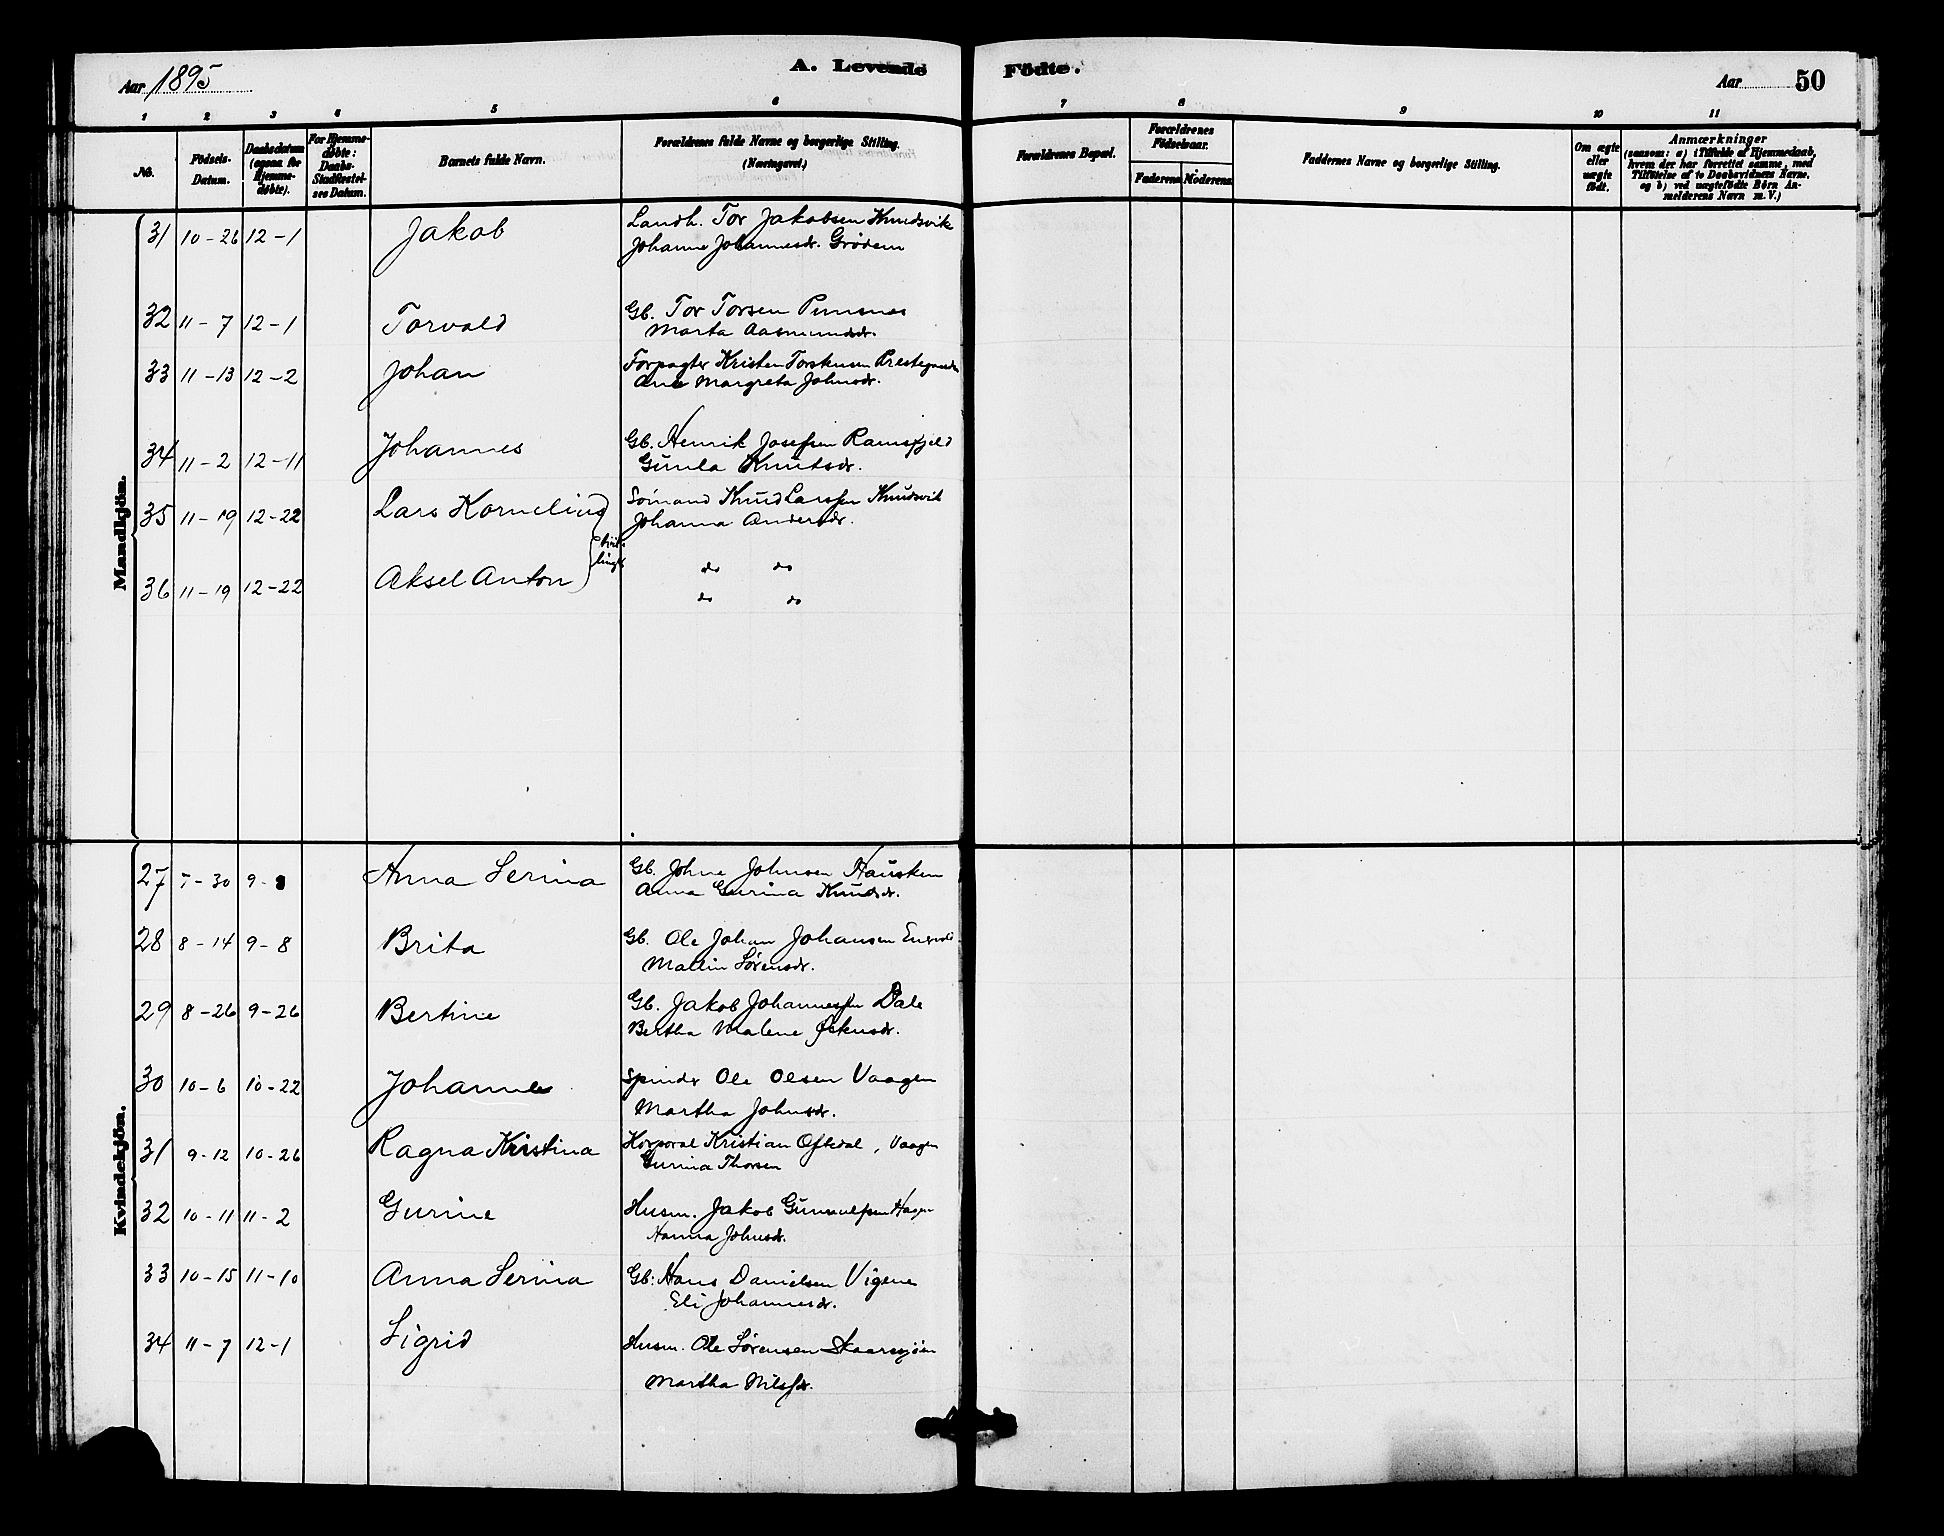 Aar 1895
A. Levende Födte.
Aar 50
1 2 3 4 5 6 7 8 9 10 11
No.
Födsels-Datum.
Daabsdatum (ogsaa for Hjemme-döbte).
For Hjemme-döbte: Daabs-Stadfæstel-ses Datum.
Barnets fulde Navn.
Forældrenes fulde Navne og borgerlige Stilling. (Næringsvei.)
Forældrenes Bopæl.
Forældrenes Födselsaar.
Faderens Moderens
Faddernes Navne og borgerlige Stilling.
Om ægte eller uægte födt.
Anmærkninger
(saasom: a) i Tilfælde af Hjemmedaab, hvem der har forrettet samme, med Tilföielse af to Daabsvidners Navne, og b) ved uægtefödte Börn An-melderens Navn m. V.)
Mandkjön.
31 10-26 12-1 Jakob Landh. Tor Jakobsen Knudsvik
Johanne Johannesdr. Grødem
32 11-7 12-1 Torvald Gb. Tor Torsen
Marta Aasmundsdr.
33 11-13 12-2 Johan Forpagter Kristen Torstensen
Ane Margreta Johnsdr.
34 11-2 12-11 Johannes Gb. Henrik Josefsen Ramsfjeld
Gunla Knutsdr.
35 11-19 12-22 Lars Kornelius Sømand Knud Larssen Knudsvik
Johanna Andersdr.
tvil-
linger
36 11-19 12-22 Aksel Anton do do
do do
Kvindekjön.
27 7-30 9-8 Anna Serina Gb. Johne Johnsen Hausken
Anna Gurina Knudsdr.
28 8-14 9-8 Brita Gb. Ole Johan Johansen
Mallin Sørensdr.
29 8-26 9-26 Bertine Gb. Jakob Johannessen Dale
Bertha Malene Østensdr.
30 10-6 10-22 Johanne Spinder Ole Olsen Vaagen
Martha Johnsdr.
31 9-12 10-26 Ragna Kristina Korporal Kristian Oftedal, Vaagen
Gurina Thorsen
32 10-11 11-2 Gurine Husm. Jakob Gunnulfsen
Hanna Johnsdr.
33 10-15 11-10 Anna Serina Gb: Hans Danielsen Vigene
Eli Johannesdr.
34 11-7 12-1 Sigrid Husm. Ole Sørensen
Martha Nilsdr.